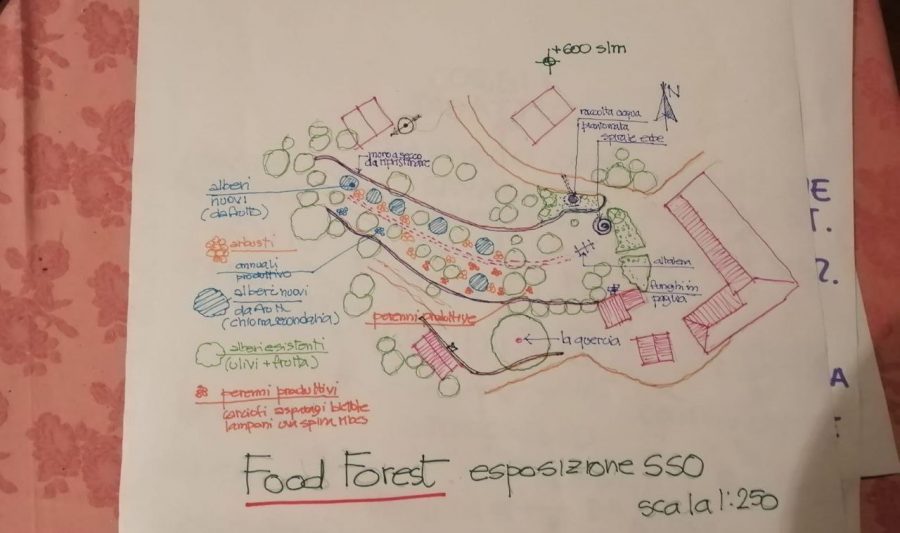 +600 slm
N
raccolta acqua
piantumata
spirale erbe
muro a secco
da ripristinare
alberi
nuovi
(da frutto)
arbusti
annuali
produttivo
alberi nuovi
da frutti
(chioma secondaria)
altalena
funghi in
paglia
perenni produttive
la quercia
alberi esistenti
(ulivi + frutta)
perenni produttivi
carciofi asparagi bietole
lamponi uva spina ribes
Food Forest esposizione SSO
scala 1:250
E
T.
2.
A